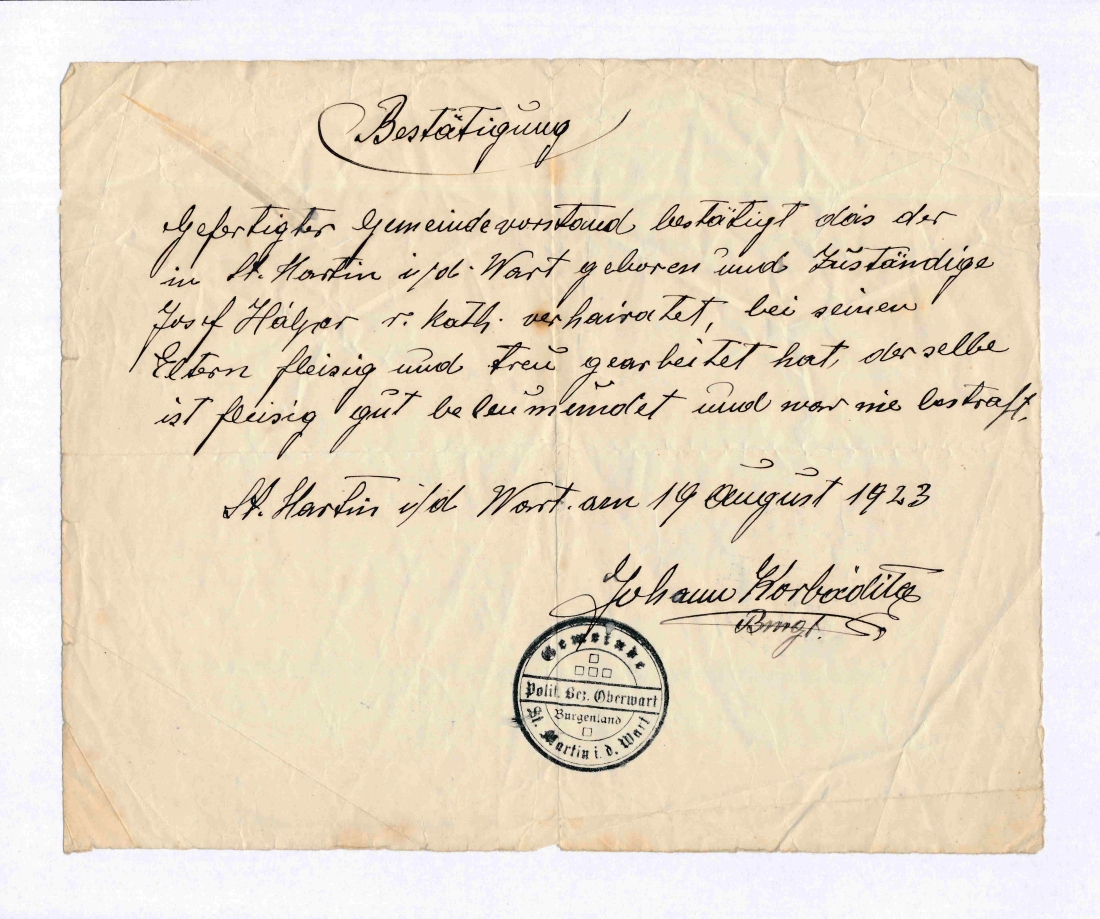 Bestätigung
Gefertigter Gemeindevorstand bestätigt das der
in St. Martin i/d. Wart geboren und Zuständige
Josef r. Kath. verhairatet, bei seinen
Eltern fleisig und treu gearbeitet hat, derselbe
ist fleisig gut beleumundet und war nie bestraft.
St. Martin i/d Wart. am 19 August 1923
Johann
Bmgt.
Gemeinde
Polit. Bez. Oberwart
Burgenland
St. Martin i. d. Wart